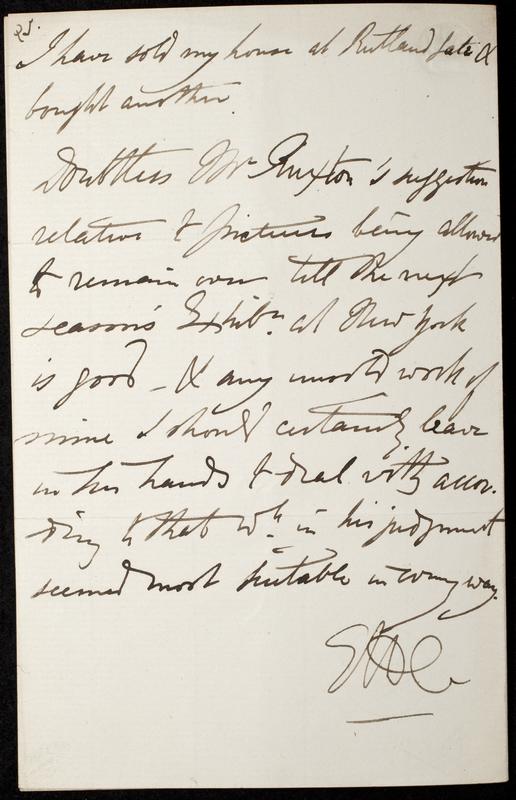 I have sold my house at Rutland Gate &
bought another.
Doubtless Mr Ruxton's suggestion
relative to pictures being allowed
to remain over till the next
season's Exhibn. at New York
is good - & any unsold work of
mine I should certainly leave
in his hands to deal with accor-
ding to that wh. in his judgment
seemed most suitable in every way.